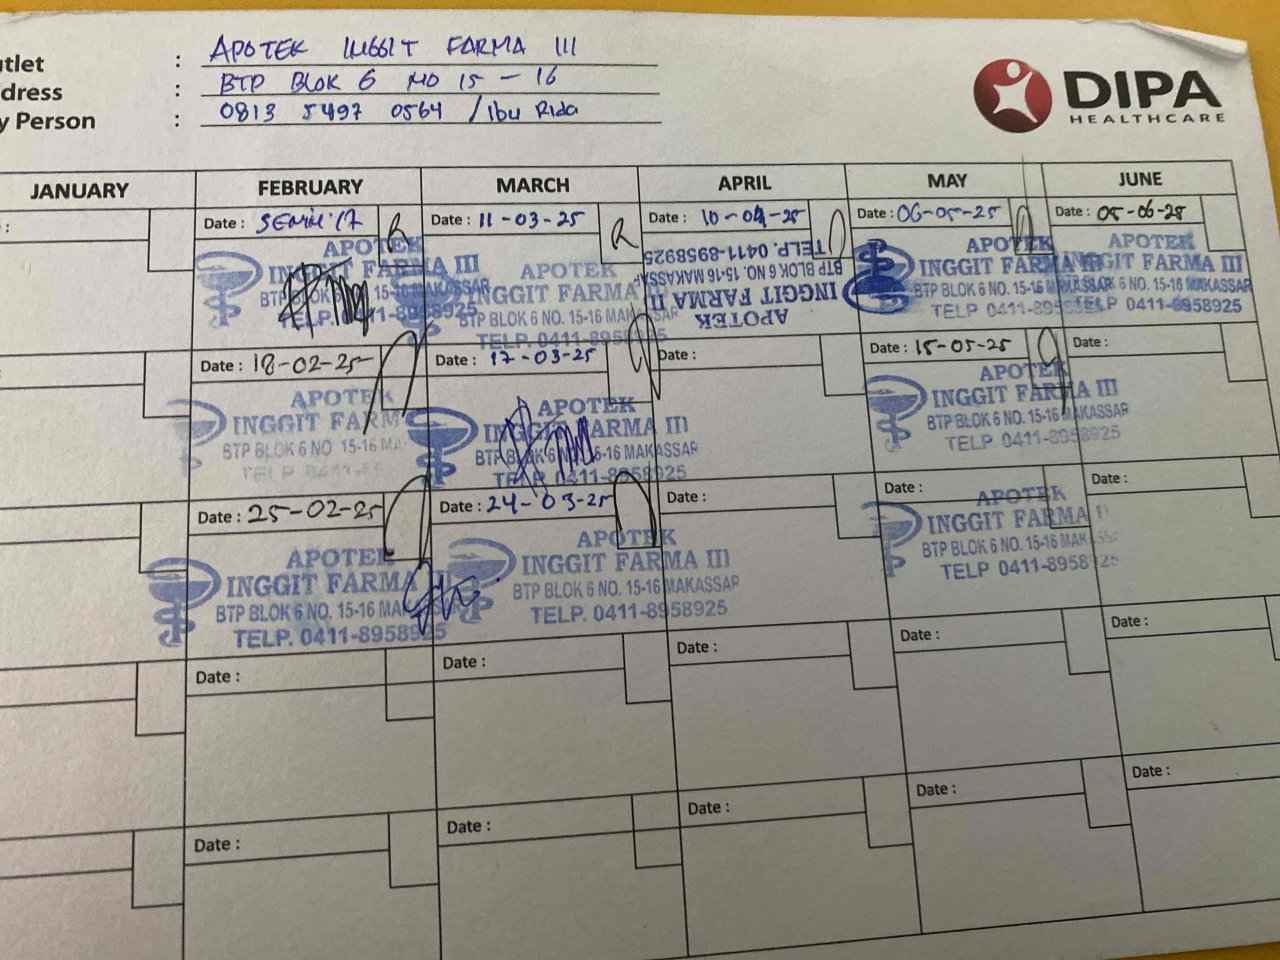 utlet : APOTEK INGGIT FARMA III
dress : BTP BLOK 6 NO 15 - 16
y Person : 0813 5497 0564 / Ibu Rida
DIPA
HEALTHCARE
JANUARY FEBRUARY MARCH APRIL MAY JUNE
: Date : SENIN '17 Date : 11-03-25 Date : 10-04-25 Date : 06-05-25 Date : 05-06-25
APOTEK
INGGIT FARMA III
BTP BLOK 6 NO. 15-16 MAKASSAR
TELP. 0411-8958925
APOTEK
INGGIT FARMA
BTP BLOK 6 NO. 15-16 MAKASSAR
TELP. 0411-8958925
APOTEK
INGGIT FARMA II
BTP BLOK 6 NO. 15-16 MAKASSAR
TELP. 0411-8958925
APOTEK
INGGIT FARMA III
BTP BLOK 6 NO. 15-16 MAKASSAR
TELP 0411-8958925
APOTEK
INGGIT FARMA III
BTP BLOK 6 NO. 15-16 MAKASSAR
TELP 0411-8958925
Date : 18-02-25 Date : 17-03-25 Date : Date : 15-05-25 Date :
APOTEK
INGGIT FARM
BTP BLOK 6 NO 15-16 MA
TELP 0411-8
APOTEK
INGGIT FARMA III
BTP BLOK 6 NO. 15-16 MAKASSAR
TELP. 0411-8958925
APOTEK
INGGIT FARMA III
BTP BLOK 6 NO. 15-16 MAKASSAR
TELP 0411-8958925
Date : 25-02-25 Date : 24-03-25 Date : Date : Date :
APOTEK
INGGIT FARMA II
BTP BLOK 6 NO. 15-16 MAKASSAR
TELP. 0411-8958925
APOTEK
INGGIT FARMA III
BTP BLOK 6 NO. 15-16 MAKASSAR
TELP. 0411-8958925
APOTEK
INGGIT FARMA I
BTP BLOK 6 NO. 15-16 MAKASS
TELP. 0411-8958925
Date : Date : Date : Date : Date :
Date : Date : Date : Date : Date :